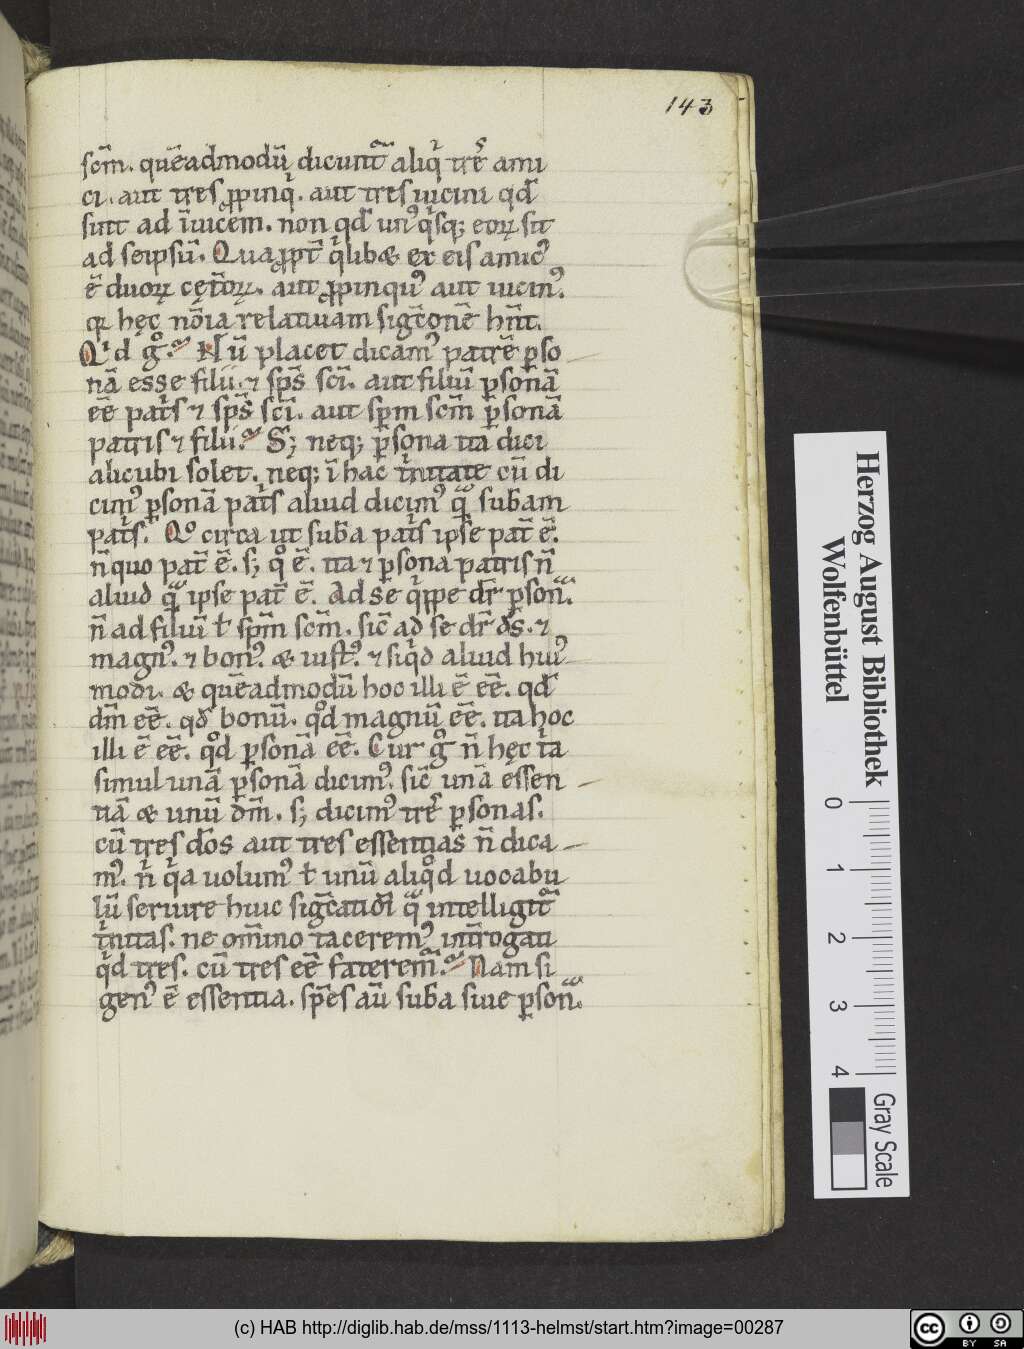 143
scm̄. quēadmodū dicunt᷑ aliq̇ trēs ami
ci. aut tres ꝓpinq̇. aut tres uicini qđ
sint ad īuicem. non qđ unꝰ q̇sq; eoꝝ sit
ad seipsū. Quaꝓpt̄ q̇libꝫ ex eis amicꝰ
ē duoꝝ cęt̄oꝝ. aut ꝓpinquꝰ aut uicinꝰ.
qꝛ hęc nōia relatiuam sigc̄onē hn̄t.
Qͥd gͦ. Nū placet dicamꝰ patrē ꝑso
nā esse filii. ⁊ sps̄ sci̅. aut filiū ꝑsonā
eē pat̄s ⁊ sps̄ sci̅. aut spm̄ scm̄ ꝑsonā
patris ⁊ filii. S; neq; ꝑsona ita dici
alicubi solet. neq; ī hac t̄nitate cū di
cimꝰ ꝑsonā pat̄s aliud dicimꝰ qͣ̄ subam
pat̄s. Qͦ circa ut suba pat̄s ipse pat̄ ē.
n̄ quo pat̄ ē. s; qͦ ē. ita ⁊ ꝑsona patris n̄
aliud qͣ̄ ipse pat̄ ē. Ad se q̇ppe dr̄ ꝑsonͣ.
n̄ ad filiū ł spm̄ scm̄. sic̄ ad se dr̄ ds̄. ⁊
magnꝰ. ⁊ bonꝰ. & iustꝰ. ⁊ siq̇d aliud huiꝰ
modi. & quēadmodū hoc illi ē eē. qđ
dm̄ eē. qđ bonū. qͦd magnū eē. ita hoc
illi ē eē. qͦd ꝑsonā eē. Cur gͦ n̄ hęc t̄a
simul unā ꝑsonā dicimꝰ. sic̄ unā essen
tiā & unū dm̄. s; dicimꝰ trēs ꝑsonas.
cū tres dōs aut tres essentias n̄ dica
mꝰ. n̄ q̇a uolumꝰ ł unū aliqͦd uocabu
lū seruire huic sigc̄atiōi qͣ̄ intelligit᷑
t̄nitas. ne om̄ino taceremꝰ int̄rogati
q̇d tres. cū tres eē faterem᷑. Nam si
genꝰ ē essentia. spēs aū suba siue ꝑsonͣ.
Herzog August Bibliothek
Wolfenbüttel
0 1 2 3 4
Gray Scale
(c) HAB http://diglib.hab.de/mss/1113-helmst/start.htm?image=00287
cc BY SA